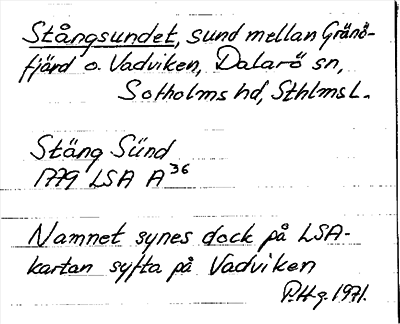 Stångsundet, sund mellan Gränö-
fjärd o. Vadviken, Dalarö sn,
Sotholms hd, Sthlms L.
Stäng Sünd
1779 LSA A 36
Namnet synes dock på LSA-
kartan syfta på Vadviken
P.Hg. 1971.